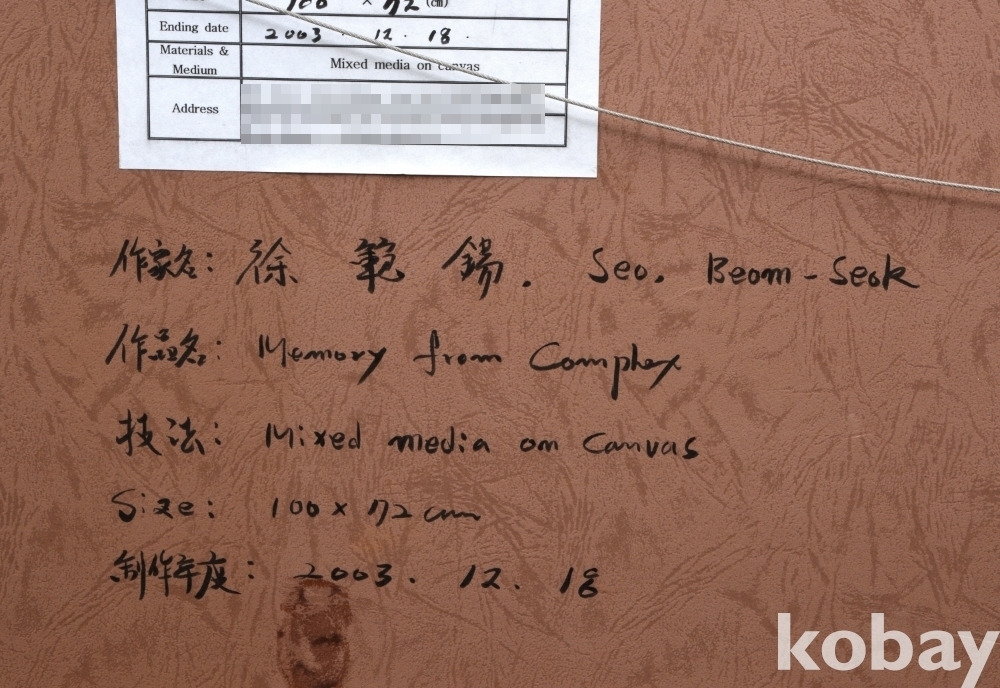 100 × 72 (cm)
Ending date 2003. 12. 18.
Materials & Medium Mixed media on canvas
Address
作家名: 徐 範 錫. Seo. Beom-Seok
作品名: Memory from Complex
技法: Mixed media on Canvas
Size: 100 x 72 cm
制作年度: 2003. 12. 18
kobay